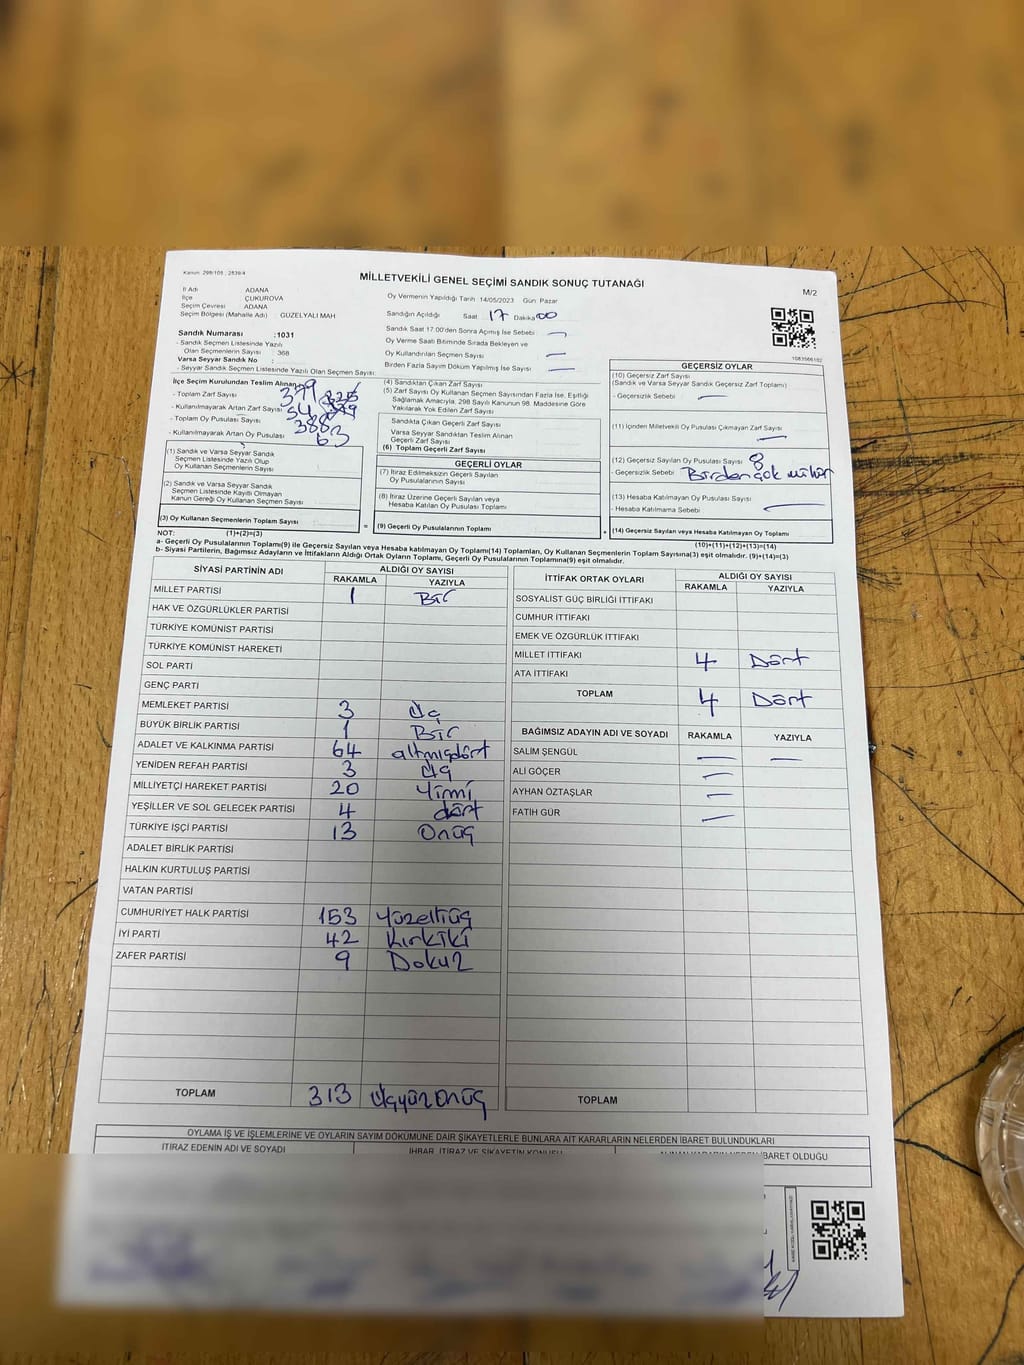 Kanun: 298/105 , 2839/4
MİLLETVEKİLİ GENEL SEÇİMİ SANDIK SONUÇ TUTANAĞI
M/2
İl Adı ADANA
İlçe ÇUKUROVA
Seçim Çevresi ADANA
Seçim Bölgesi (Mahalle Adı) : GÜZELYALI MAH
Oy Vermenin Yapıldığı Tarih :14/05/2023 Gün: Pazar
Sandığın Açıldığı Saat 17 Dakika 00
Sandık Saat 17:00'den Sonra Açılmış İse Sebebi
Oy Verme Saati Bitiminde Sırada Bekleyen ve
Oy Kullandırılan Seçmen Sayısı
Birden Fazla Sayım Döküm Yapılmış İse Sayısı
Sandık Numarası :1031
- Sandık Seçmen Listesinde Yazılı
Olan Seçmenlerin Sayısı : 368
Varsa Seyyar Sandık No :
- Seyyar Sandık Seçmen Listesinde Yazılı Olan Seçmen Sayısı:
İlçe Seçim Kurulundan Teslim Alınan
- Toplam Zarf Sayısı 379
- Kullanılmayarak Artan Zarf Sayısı 54
- Toplam Oy Pusulası Sayısı 388
- Kullanılmayarak Artan Oy Pusulası 63
(1) Sandık ve Varsa Seyyar Sandık
Seçmen Listesinde Yazılı Olup
Oy Kullanan Seçmenlerin Sayısı
(2) Sandık ve Varsa Seyyar Sandık
Seçmen Listesinde Kayıtlı Olmayan
Kanun Gereği Oy Kullanan Seçmen Sayısı
(3) Oy Kullanan Seçmenlerin Toplam Sayısı
(1)+(2)=(3)
(4) Sandıktan Çıkan Zarf Sayısı
(5) Zarf Sayısı Oy Kullanan Seçmen Sayısından Fazla İse, Eşitliği
Sağlamak Amacıyla, 298 Sayılı Kanunun 98. Maddesine Göre
Yakılarak Yok Edilen Zarf Sayısı
Sandıkta Çıkan Geçerli Zarf Sayısı
Varsa Seyyar Sandıktan Teslim Alınan
Geçerli Zarf Sayısı
(6) Toplam Geçerli Zarf Sayısı
GEÇERLİ OYLAR
(7) İtiraz Edilmeksizin Geçerli Sayılan
Oy Pusulalarının Sayısı
(8) İtiraz Üzerine Geçerli Sayılan ve
Hesaba Katılan Oy Pusulası Toplamı
= (9) Geçerli Oy Pusulalarının Toplamı +
GEÇERSİZ OYLAR
(10) Geçersiz Zarf Sayısı
(Sandık ve Varsa Seyyar Sandık Geçersiz Zarf Toplamı)
- Geçersizlik Sebebi
(11) İçinden Milletvekili Oy Pusulası Çıkmayan Zarf Sayısı
(12) Geçersiz Sayılan Oy Pusulası Sayısı 8
- Geçersizlik Sebebi Birden çok mühür
(13) Hesaba Katılmayan Oy Pusulası Sayısı
- Hesaba Katılmama Sebebi
(14) Geçersiz Sayılan veya Hesaba Katılmayan Oy Toplamı
(10)+(11)+(12)+(13)=(14)
NOT:
a- Geçerli Oy Pusulalarının Toplamı(9) ile Geçersiz Sayılan veya Hesaba katılmayan Oy Toplamı(14) Toplamları, Oy Kullanan Seçmenlerin Toplam Sayısına(3) eşit olmalıdır. (9)+(14)=(3)
b- Siyasi Partilerin, Bağımsız Adayların ve İttifakların Aldığı Oyların Toplamı, Geçerli Oy Pusulalarının Toplamına(9) eşit olmalıdır.
SİYASİ PARTİNİN ADI ALDIĞI OY SAYISI
RAKAMLA YAZIYLA
MİLLET PARTİSİ 1 Bir
HAK VE ÖZGÜRLÜKLER PARTİSİ
TÜRKİYE KOMÜNİST PARTİSİ
TÜRKİYE KOMÜNİST HAREKETİ
SOL PARTİ
GENÇ PARTİ
MEMLEKET PARTİSİ 3 üç
BÜYÜK BİRLİK PARTİSİ 1 Bir
ADALET VE KALKINMA PARTİSİ 64 altmışdört
YENİDEN REFAH PARTİSİ 3 üç
MİLLİYETÇİ HAREKET PARTİSİ 20 Yirmi
YEŞİLLER VE SOL GELECEK PARTİSİ 4 dört
TÜRKİYE İŞÇİ PARTİSİ 13 Onüç
ADALET BİRLİK PARTİSİ
HALKIN KURTULUŞ PARTİSİ
VATAN PARTİSİ
CUMHURİYET HALK PARTİSİ 153 Yüzelliüç
İYİ PARTİ 42 Kırkiki
ZAFER PARTİSİ 9 Dokuz
TOPLAM 313 üçyüzonüç
İTTİFAK ORTAK OYLARI ALDIĞI OY SAYISI
RAKAMLA YAZIYLA
SOSYALİST GÜÇ BİRLİĞİ İTTİFAKI
CUMHUR İTTİFAKI
EMEK VE ÖZGÜRLÜK İTTİFAKI
MİLLET İTTİFAKI 4 Dört
ATA İTTİFAKI
TOPLAM 4 Dört
BAĞIMSIZ ADAYIN ADI VE SOYADI RAKAMLA YAZIYLA
SALİM ŞENGÜL
ALİ GÖÇER
AYHAN ÖZTAŞLAR
FATİH GÜR
TOPLAM
OYLAMA İŞ VE İŞLEMLERİNE VE OYLARIN SAYIM DÖKÜMÜNE DAİR ŞİKAYETLERLE BUNLARA AİT KARARLARIN NELERDEN İBARET BULUNDUKLARI
İTİRAZ EDENİN ADI VE SOYADI İHBAR, İTİRAZ VE ŞİKAYETİN KONUSU ALINAN KARARIN NEDEN İBARET OLDUĞU